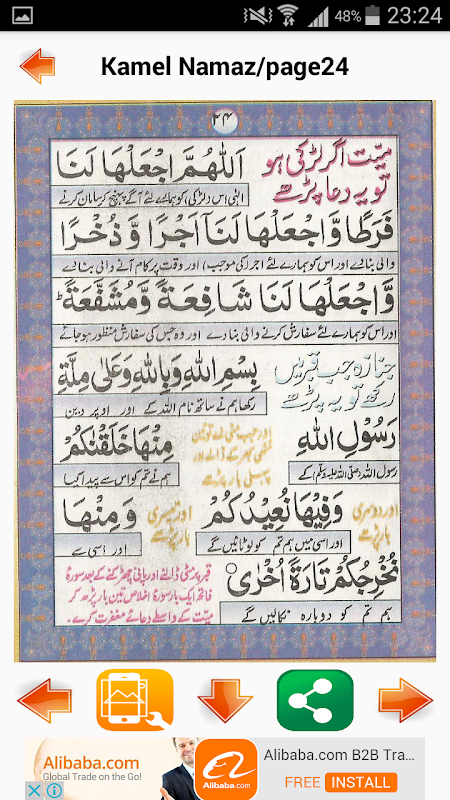 48% 23:24
Kamel Namaz/page24
۲۴
میّت اگر لڑکی ہو
تو یہ دعا پڑھے
اَللّٰهُمَّ اجْعَلْهَا لَنَا
الٰہی اس (لڑکی) کو ہمارے لئے آگے پہنچ کر سامان کرنے
فَرَطًا وَّاجْعَلْهَا لَنَا اَجْرًا وَّذُخْرًا
والی بنا دے اور اس کو ہمارے لئے اجر (کی موجب) اور وقت پر کام آنے والی بنا دے
وَّاجْعَلْهَا لَنَا شَافِعَةً وَّمُشَفَّعَةً ؕ
اور اس کو ہمارے لئے سفارش کرنے والی بنا دے اور وہ جس کی سفارش منظور ہو جائے
جنازہ جب قبر میں
رکھے تو یہ پڑھے
بِسْمِ اللّٰهِ وَبِاللّٰهِ وَعَلٰی مِلَّةِ
رکھا ہم نے ساتھ نام اللہ کے اور اوپر دین
رَسُوْلِ اللّٰهِ
رسول اللہ (صلی اللہ علیہ وسلم) کے
اور جب مٹی دے تو تین
مٹھی بھر کے ڈالے اور
پہلی بار پڑھے
مِنْهَا خَلَقْنٰكُمْ
ہم نے تم کو اس سے پیدا کیا
اور دوسری
بار پڑھے
وَفِيْهَا نُعِيْدُكُمْ
اور اسی میں ہم تم کو لوٹائیں گے
اور تیسری
بار پڑھے
وَمِنْهَا
اور اسی سے
نُخْرِجُكُمْ تَارَةً اُخْرٰی ○
ہم تم کو دوبارہ نکالیں گے
قبر پر مٹی ڈالنے اور پانی چھڑکنے کے بعد سورۂ
فاتحہ ایک بار سورۂ اخلاص تین بار پڑھ کر
میّت کے واسطے دعائے مغفرت کرے۔
Alibaba.com
Global Trade on the Go!
Alibaba.com
Alibaba.com B2B Tra...
FREE INSTALL